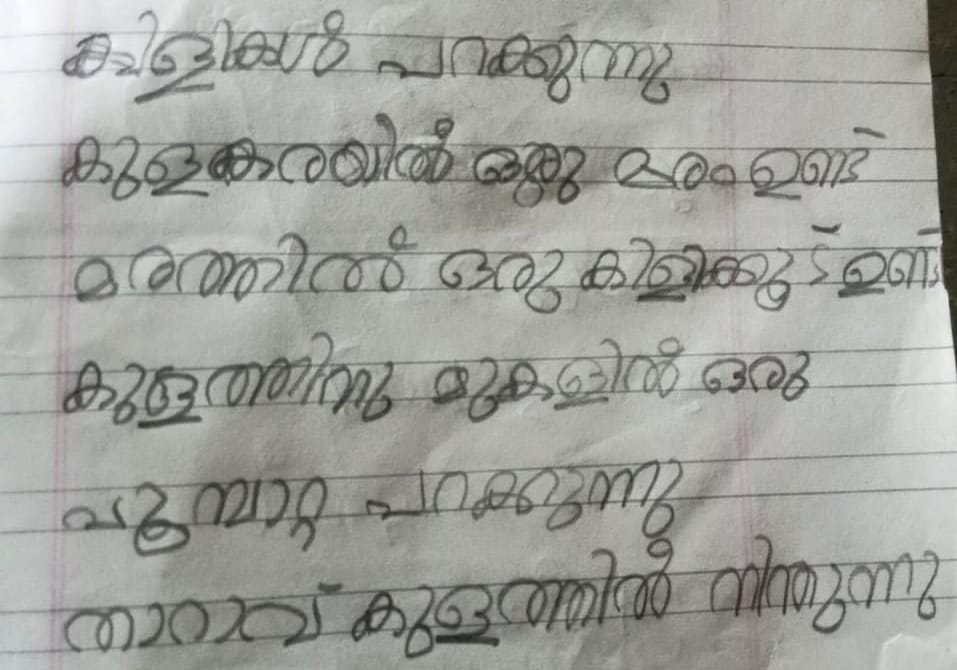 കിളികൾ പറക്കുന്നു
കുളകരയിൽ ഒരു മരം ഉണ്ട്
മരത്തിൽ ഒരു കിളിക്കൂട് ഉണ്ട്
കുളത്തിനു മുകളിൽ ഒരു
പൂമ്പാറ്റ പറക്കുന്നു
താറാവ് കുളത്തിൽ നിന്തുന്നു